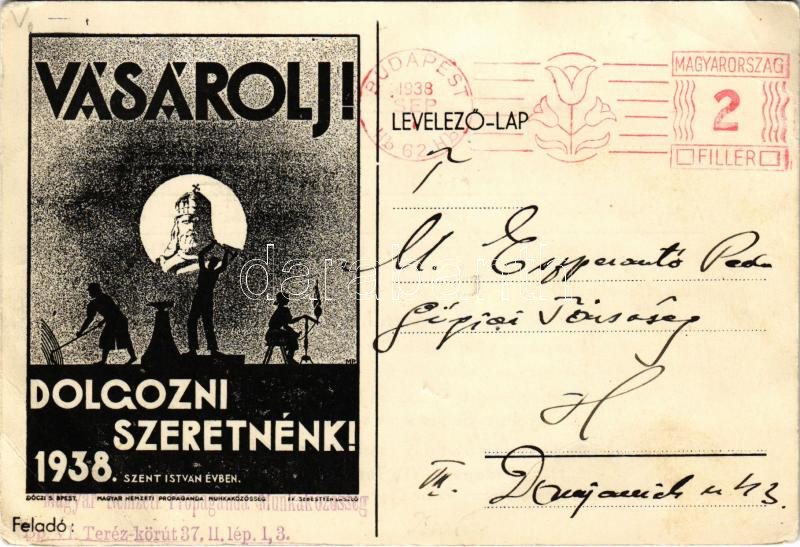 VÁSÁROLJ!
DOLGOZNI
SZERETNÉNK!
1938. SZENT ISTVÁN ÉVBEN.
DÓCZI S. BPEST. MAGYAR NEMZETI PROPAGANDA MUNKAKÖZÖSSÉG
Magyar Nemzeti Propaganda Munkaközösség
Bp. VI. Teréz-körút 37, II. lép. I, 3.
Feladó:
BUDAPEST
1938
SEP
62
MAGYARORSZÁG
2
FILLÉR
LEVELEZŐ-LAP
T
M. Eszperantó Peda
Társaság
H
VII. Damjanich u 43.